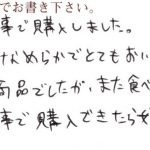 でお書き下さい。
事で購入しました。
なめらかでとてもおい
商品でしたが、また食べ
事で購入できたら